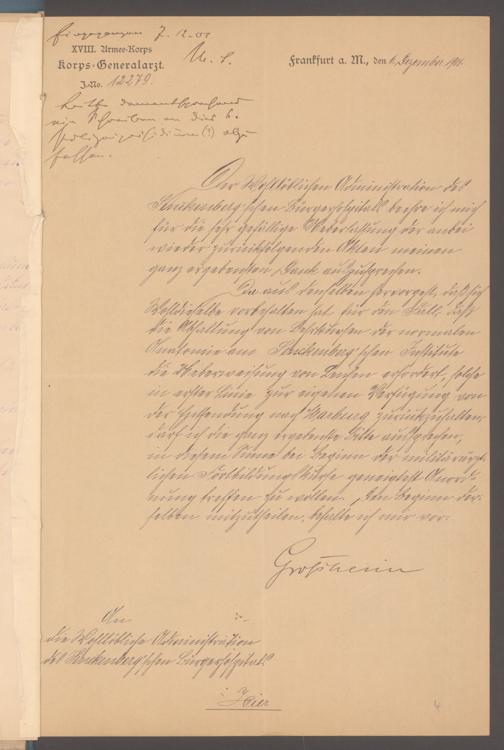 Eingegangen 7.12.01
XVIII. Armee-Korps
Korps-Generalarzt.
J.-No. 12279.
Frankfurt a. M., den 6. Dezember 1901.
Heute dementsprechend
ein Schreiben an das K.
Polizeipräsidium (1) abge-
Der Wohllöblichen Administration des
Senckenberg'schen Bürgerhospitals beehre ich mich
für die sehr gefällige Ueberlassung der anbei
wieder zurückfolgenden Akten meinen
ganz ergebensten Dank auszusprechen.
Da aus denselben hervorgeht, daß sich
Wohldieselbe vorbehalten hat für den Fall, daß
die Abhaltung von Lehrkursen der normalen
Anatomie am Senckenberg'schen Institute
die Ueberweisung von Leichen erfordert, solche
in erster Linie zur eigenen Verfügung von
der Absendung nach Marburg zurückzuhalten,
darf ich die ganz ergebenste Bitte aussprechen,
in diesem Sinne bei Beginn der militärärzt-
lichen Fortbildungskurse geneigtest Anord-
nung treffen zu wollen. Den Beginn der-
selben mitzutheilen, behalte ich mir vor.
Grossheim
An
die Wohllöbliche Administration
des Senckenberg'schen Bürgerhospitals
Hier
4